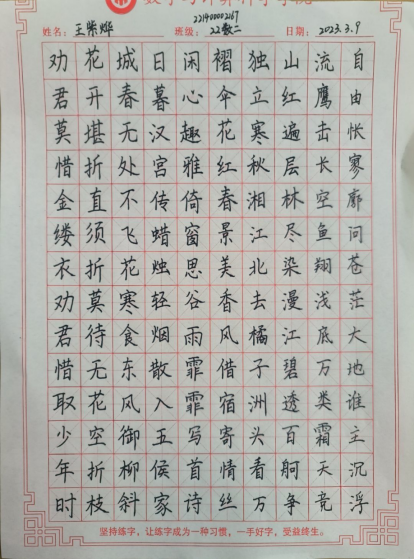 221400002167
姓名：王紫烨 班级：22数二 日期：2023.3.9
劝君莫惜金缕衣劝君惜取少年时
花开堪折直须折莫待无花空折枝
城春无处不飞花寒食东风御柳斜
日暮汉宫传蜡烛轻烟散入五侯家
闲心趣雅倚窗思谷雨霏霏写首诗
褶伞花红春景美香风借宿寄情丝
独立寒秋湘江北去橘子洲头看万
山红遍层林尽染漫江碧透百舸争
流鹰击长空鱼翔浅底万类霜天竞
自由怅寥廓问苍茫大地谁主沉浮
坚持练字，让练字成为一种习惯，一手好字，受益终生。